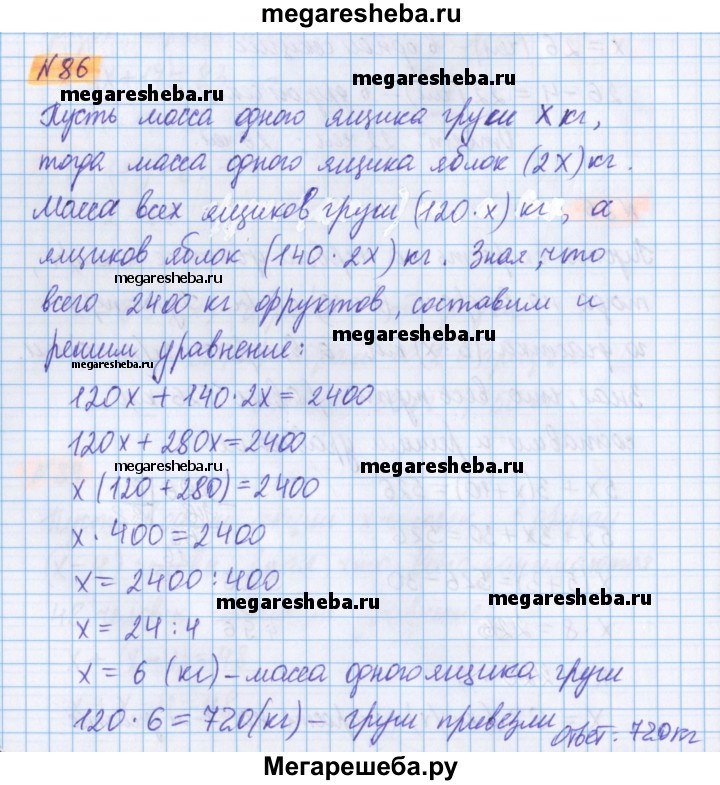 megaresheba.ru
N 86
megaresheba.ru
megaresheba.ru
Пусть масса одного ящика груш x кг,
тогда масса одного ящика яблок (2x) кг.
Масса всех ящиков груш (120·x) кг, а
ящиков яблок (140·2x) кг. Зная, что
megaresheba.ru
всего 2400 кг фруктов, составим и
megaresheba.ru
решим уравнение:
megaresheba.ru
120x + 140·2x = 2400
120x + 280x = 2400
megaresheba.ru
megaresheba.ru
x (120 + 280) = 2400
x · 400 = 2400
x = 2400 : 400
megaresheba.ru
megaresheba.ru
x = 24 : 4
x = 6 (кг) – масса одного ящика груш
120 · 6 = 720 (кг) – груш привезли
Ответ: 720 кг
Мегарешеба.ру